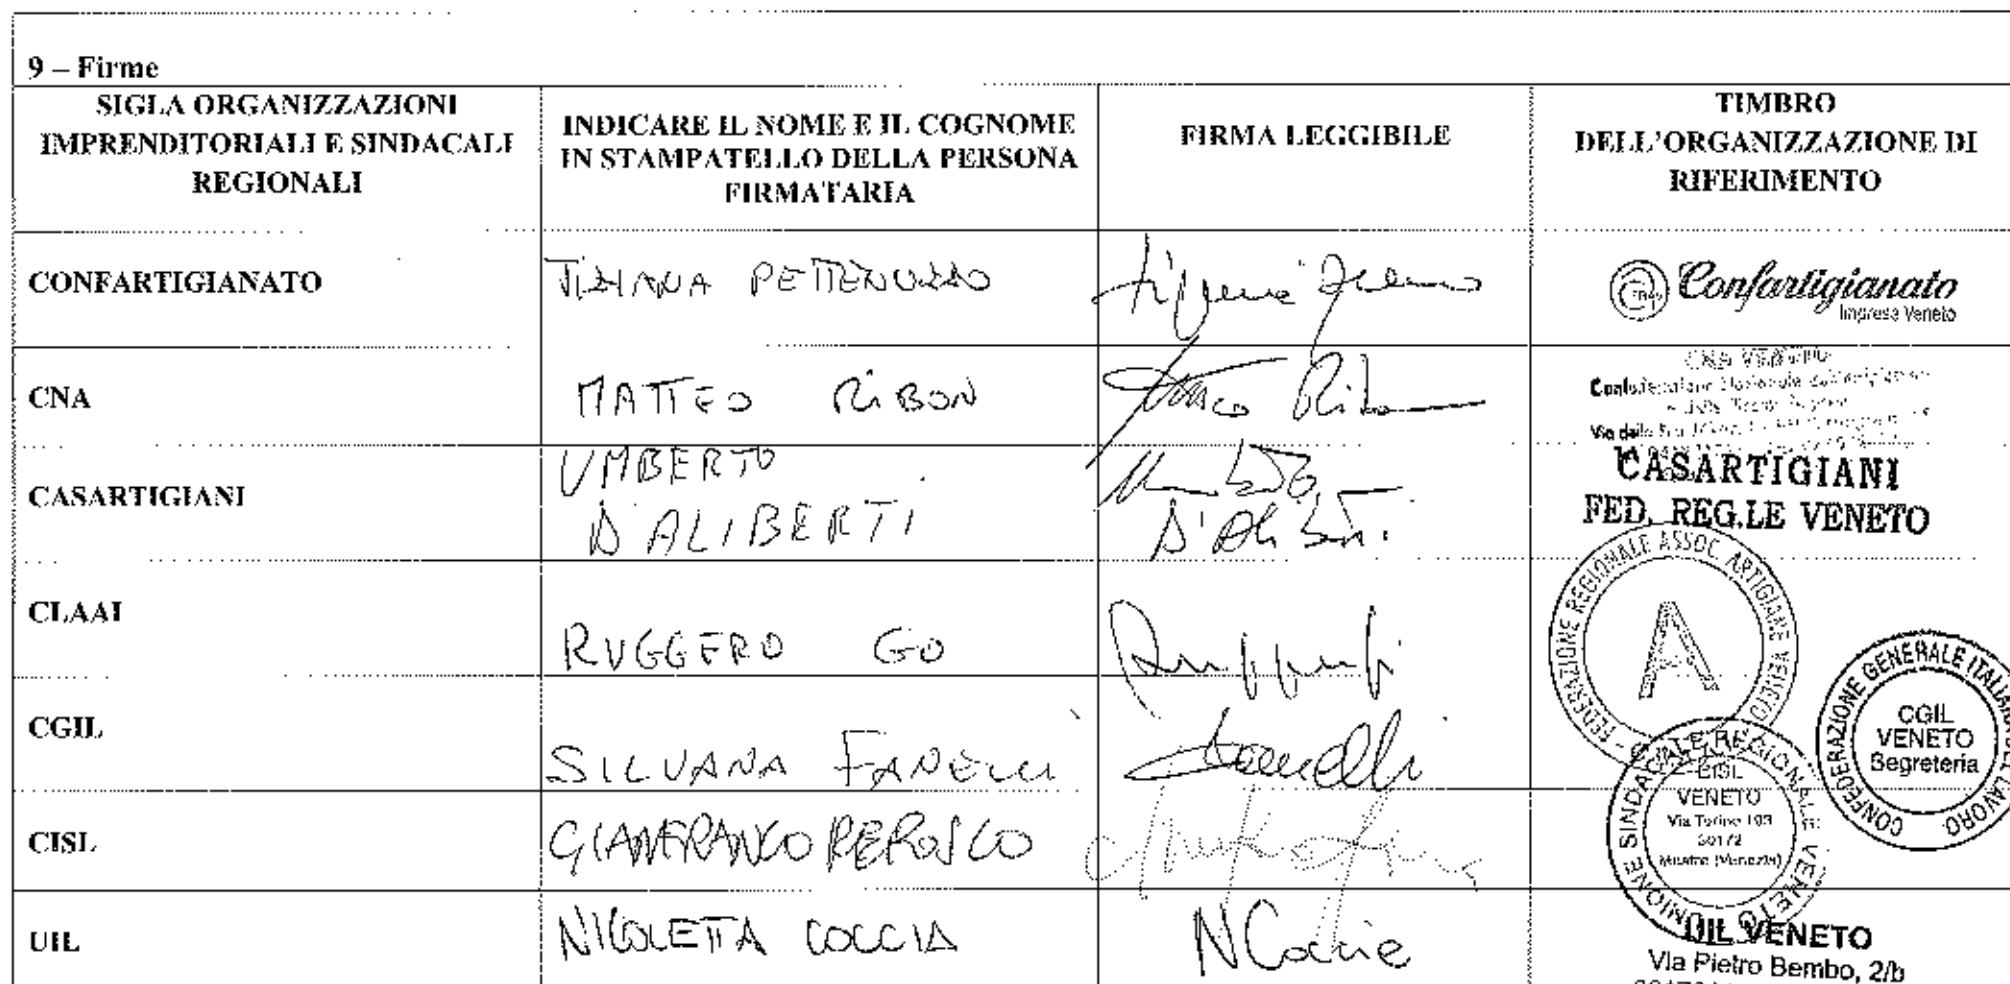 9 – Firme
SIGLA ORGANIZZAZIONI
IMPRENDITORIALI E SINDACALI
REGIONALI
INDICARE IL NOME E IL COGNOME
IN STAMPATELLO DELLA PERSONA
FIRMATARIA
FIRMA LEGGIBILE
TIMBRO
DELL'ORGANIZZAZIONE DI
RIFERIMENTO
CONFARTIGIANATO
TIZIANA PETTENUZZO
Confartigianato
Imprese Veneto
CNA
MATTEO RIBON
CASARTIGIANI
UMBERTO
D'ALIBERTI
D'Aliberti
CASARTIGIANI
FED. REG.LE VENETO
CLAAI
RUGGERO GO
FEDERAZIONE REGIONALE ASSOC. ARTIGIANE
A
CGIL
SILVANA FANELLI
Fanelli
CONFEDERAZIONE GENERALE ITALIANA DEL LAVORO
CGIL
VENETO
Segreteria
CISL
GIANFRANCO REFOSCO
UNIONE SINDACALE REGIONALE VENETO
CISL
VENETO
Via Torino 103
30172
Mestre (Venezia)
UIL
NICOLETTA COCCIA
NCoccia
UIL VENETO
Via Pietro Bembo, 2/b